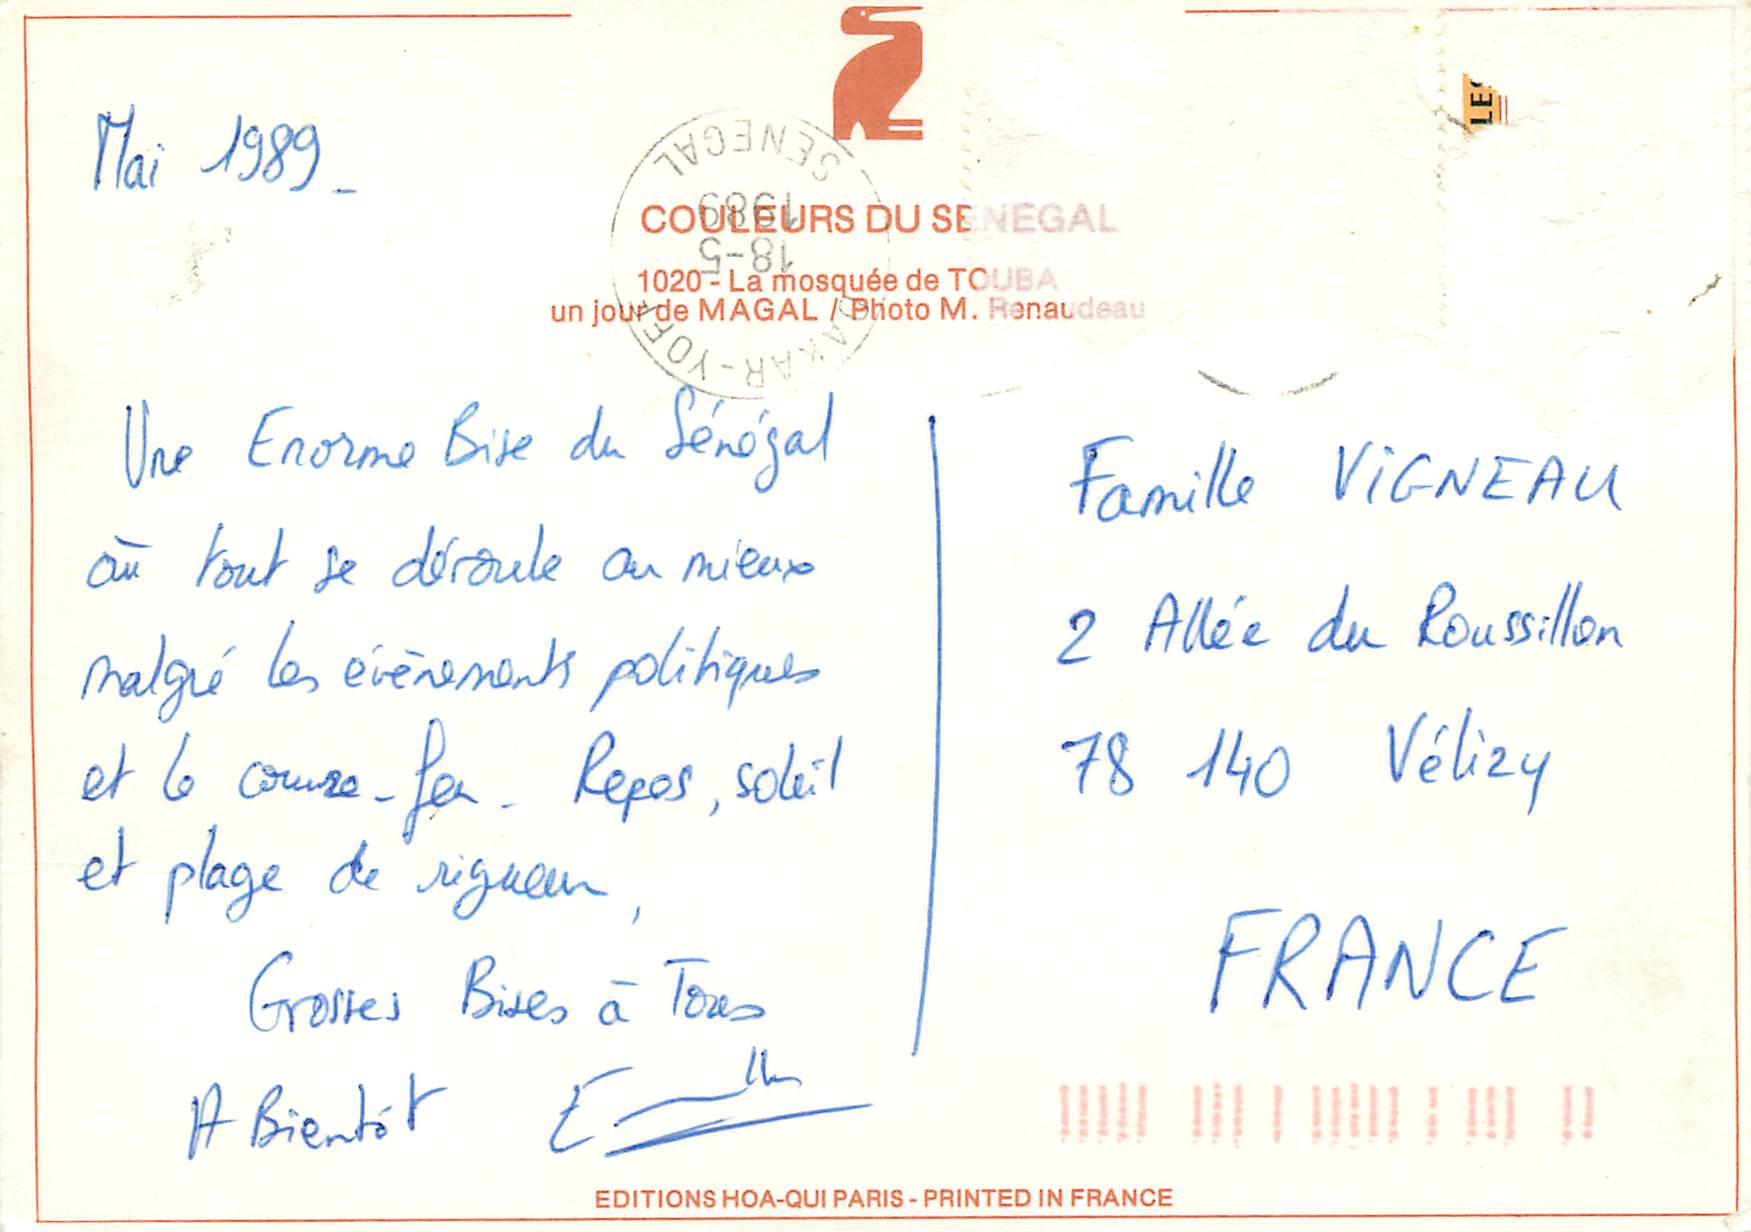 Mai 1989 -
SENEGAL
1989
18-5
DAKAR-YOFF
COULEURS DU SENEGAL
1020 - La mosquée de TOUBA
un jour de MAGAL / Photo M. Renaudeau
LES
Une Enorme Bise du Sénégal
où tout se déroule au mieux
malgré les évènements politiques
et le couvre-feu - Repos, soleil
et plage de rigueur,
Grosses Bises à Tous
A Bientôt
Famille ViGNEAU
2 Allée du Roussillon
78 140 Vélizy
FRANCE
EDITIONS HOA-QUI PARIS - PRINTED IN FRANCE